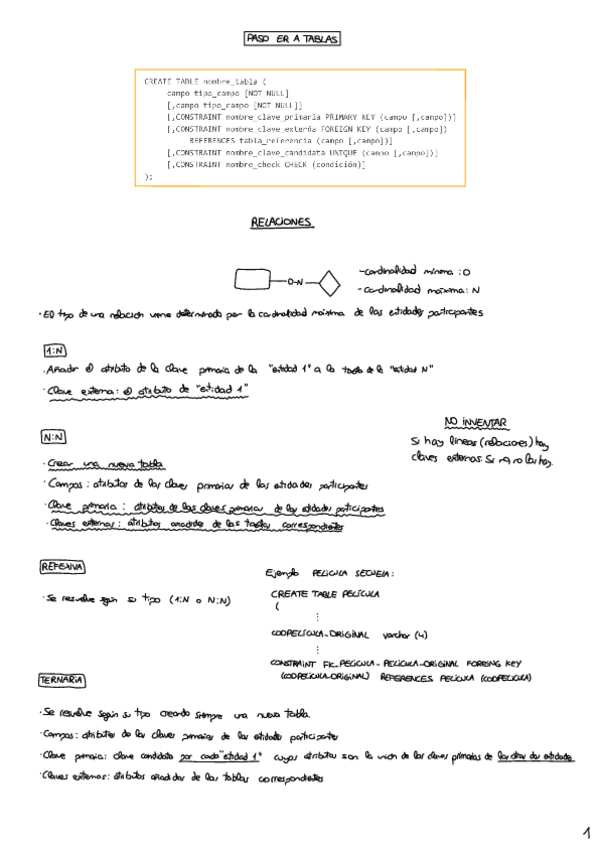 PASO ER A TABLAS
CREATE TABLE nombre_tabla (
campo tipo_campo [NOT NULL]
[,campo tipo_campo [NOT NULL]]
[,CONSTRAINT nombre_clave_primaria PRIMARY KEY (campo [,campo])]
[,CONSTRAINT nombre_clave_externa FOREIGN KEY (campo [,campo])
REFERENCES tabla_referencia (campo [,campo])]
[,CONSTRAINT nombre_clave_candidata UNIQUE (campo [,campo])]
[,CONSTRAINT nombre_check CHECK (condición)]
);
RELACIONES
O-N
-Cardinalidad mínima: O
-Cardinalidad máxima: N
·El tipo de una relación viene determinado por la cardinalidad máxima de las entidades participantes
1:N
·Añadir el atributo de la clave primaria de la "entidad 1" a la tabla de la "entidad N"
·Clave externa: el atributo de "entidad 1"
NO INVENTAR
Si hay líneas (relaciones) hay
claves externas. Si no, no las hay.
N:N
·Crear una nueva tabla
·Campos: atributos de las claves primarias de las entidades participantes
·Clave primaria: atributos de las claves primarias de las entidades participantes
·Claves externas: atributos añadidos de las tablas correspondientes
REFEXIVA
·Se resuelve según su tipo (1:N o N:N)
Ejemplo PELÍCULA SECUELA:
CREATE TABLE PELÍCULA
(
⋮
CODPELÍCULA_ORIGINAL varchar (4)
⋮
CONSTRAINT FK_PELICULA_PELICULA_ORIGINAL FOREING KEY
(CODPELICULA_ORIGINAL) REFERENCES PELICULA (CODPELICULA)
TERNARIA
·Se resuelve según su tipo creando siempre una nueva tabla.
·Campos: atributos de las claves primarias de las entidades participantes
·Clave primaria: clave candidata por cada "entidad 1" cuyos atributos son la unión de las claves primarias de las otras dos entidades.
·Claves externas: atributos añadidos de las tablas correspondientes
1